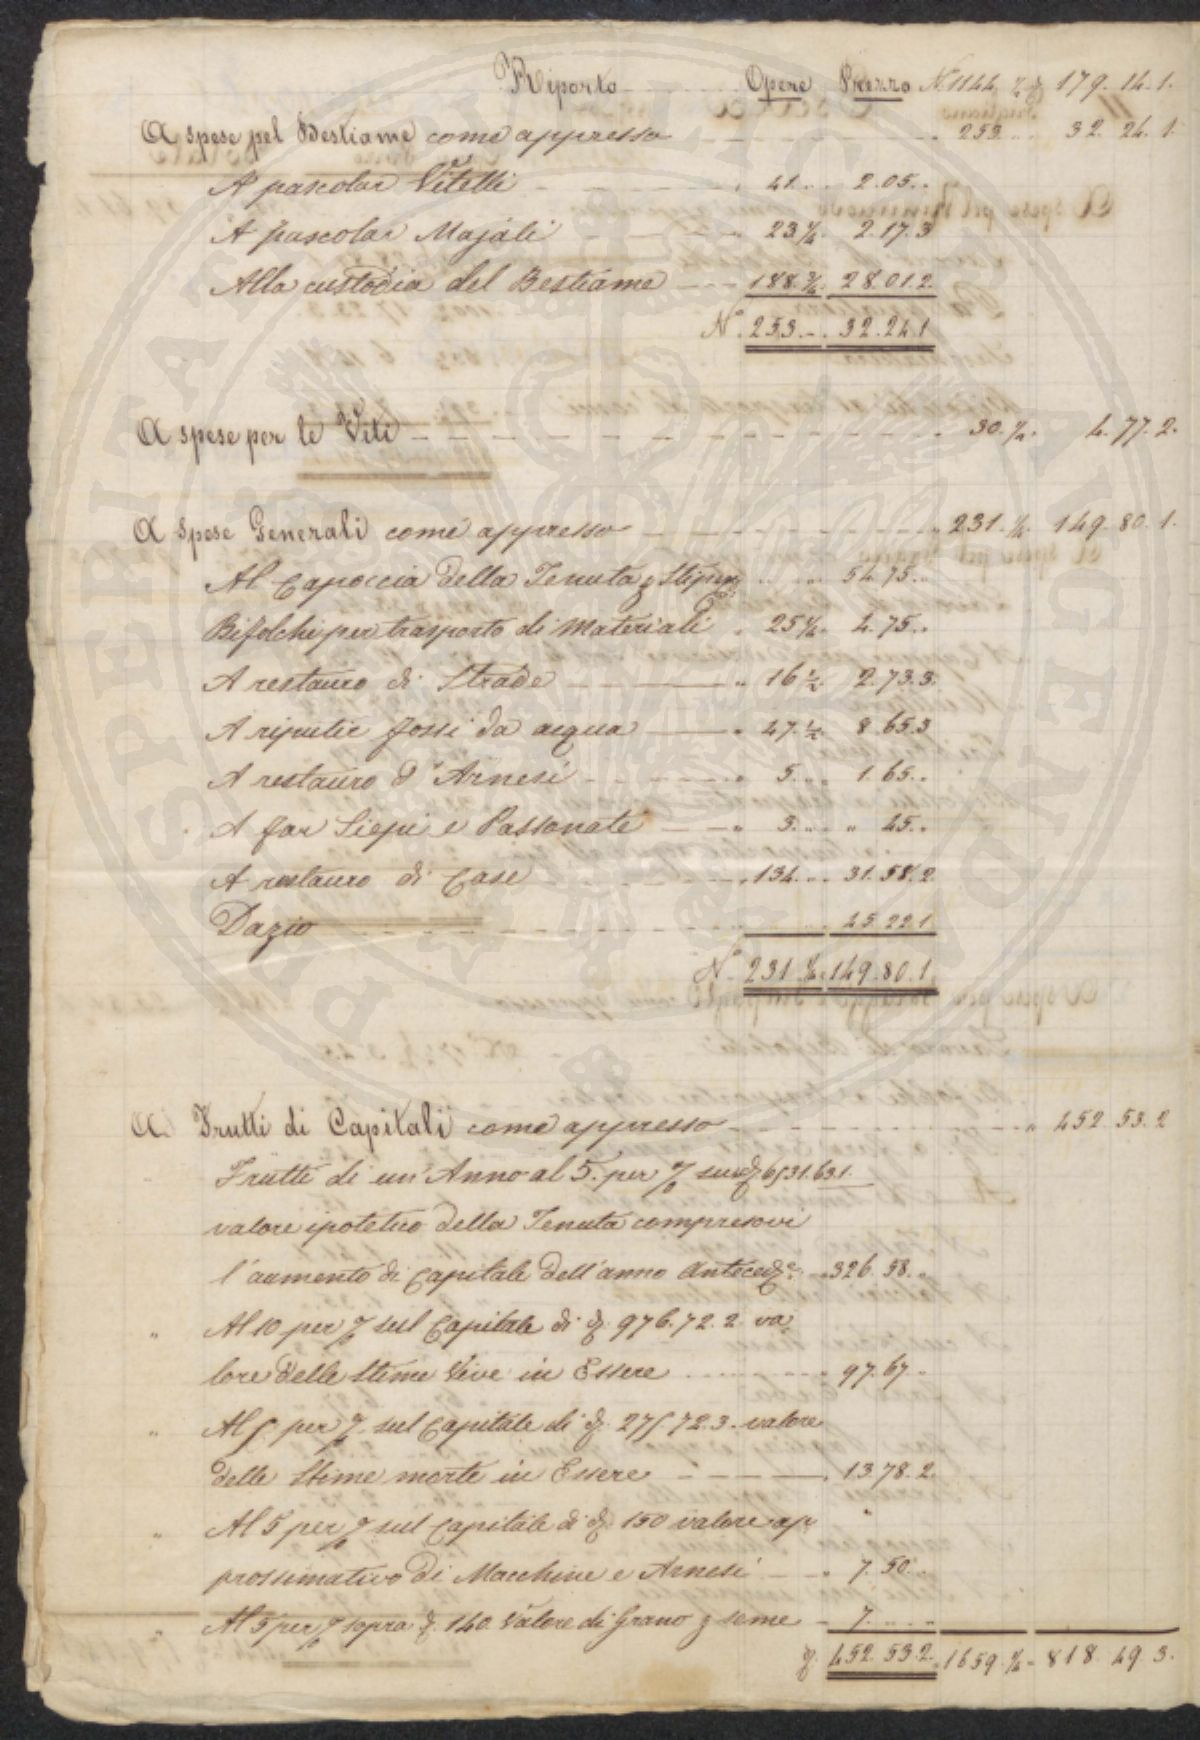 Riporto Opere Prezzo N. 1144 ¾ 179. 14. 1.
A spese pel Bestiame come appresso 253 32. 24. 1
A pascolar Vitelli 41 2.05
A pascolar Majali 23 ¾ 2.17.3
Alla custodia del Bestiame 188 ¼ 28 01 2
N. 253 32.24.1
A spese per le Viti 30. 4. 77. 2.
A Spese Generali come appresso 231. 149. 80. 1.
Al Capoccia della Tenuta 54.75
Bifolchi per trasporto di Materiali 25 4.75
A restauro di Strade 16 ½ 2.73.3
A ripulir fossi da acqua 47. ½ 8 65.3
A restauro d'Arnesi 5. 1.65
A far Siepi e Passonate 3. " 45
A restauro di Case 134. 31. 58. 2
Dazio 45 22 1
N. 231 149.80.1
A Frutti di Capitali come appresso 452 53. 2
Frutti di un'Anno al 5. per % 6531.63.1.
valore ipotetico della Tenuta compresovi
l'aumento di Capitale dell'anno 326. 58.
" Al 10 per % sul Capitale di 976.72.2. va
lore delle Stime Vive in Essere 97. 67
" Al 5 per % sul Capitale di 275 72 3. valore
delle Stime morte in Essere 13 78. 2
" Al 5 per % sul Capitale di 150 valore ap
prossimativo di Macchine e Arnesi 7. 50
" Al 5 per % sopra 140. Valore di Grano seme 7.
452. 53 2. 1659. 818 49 3.